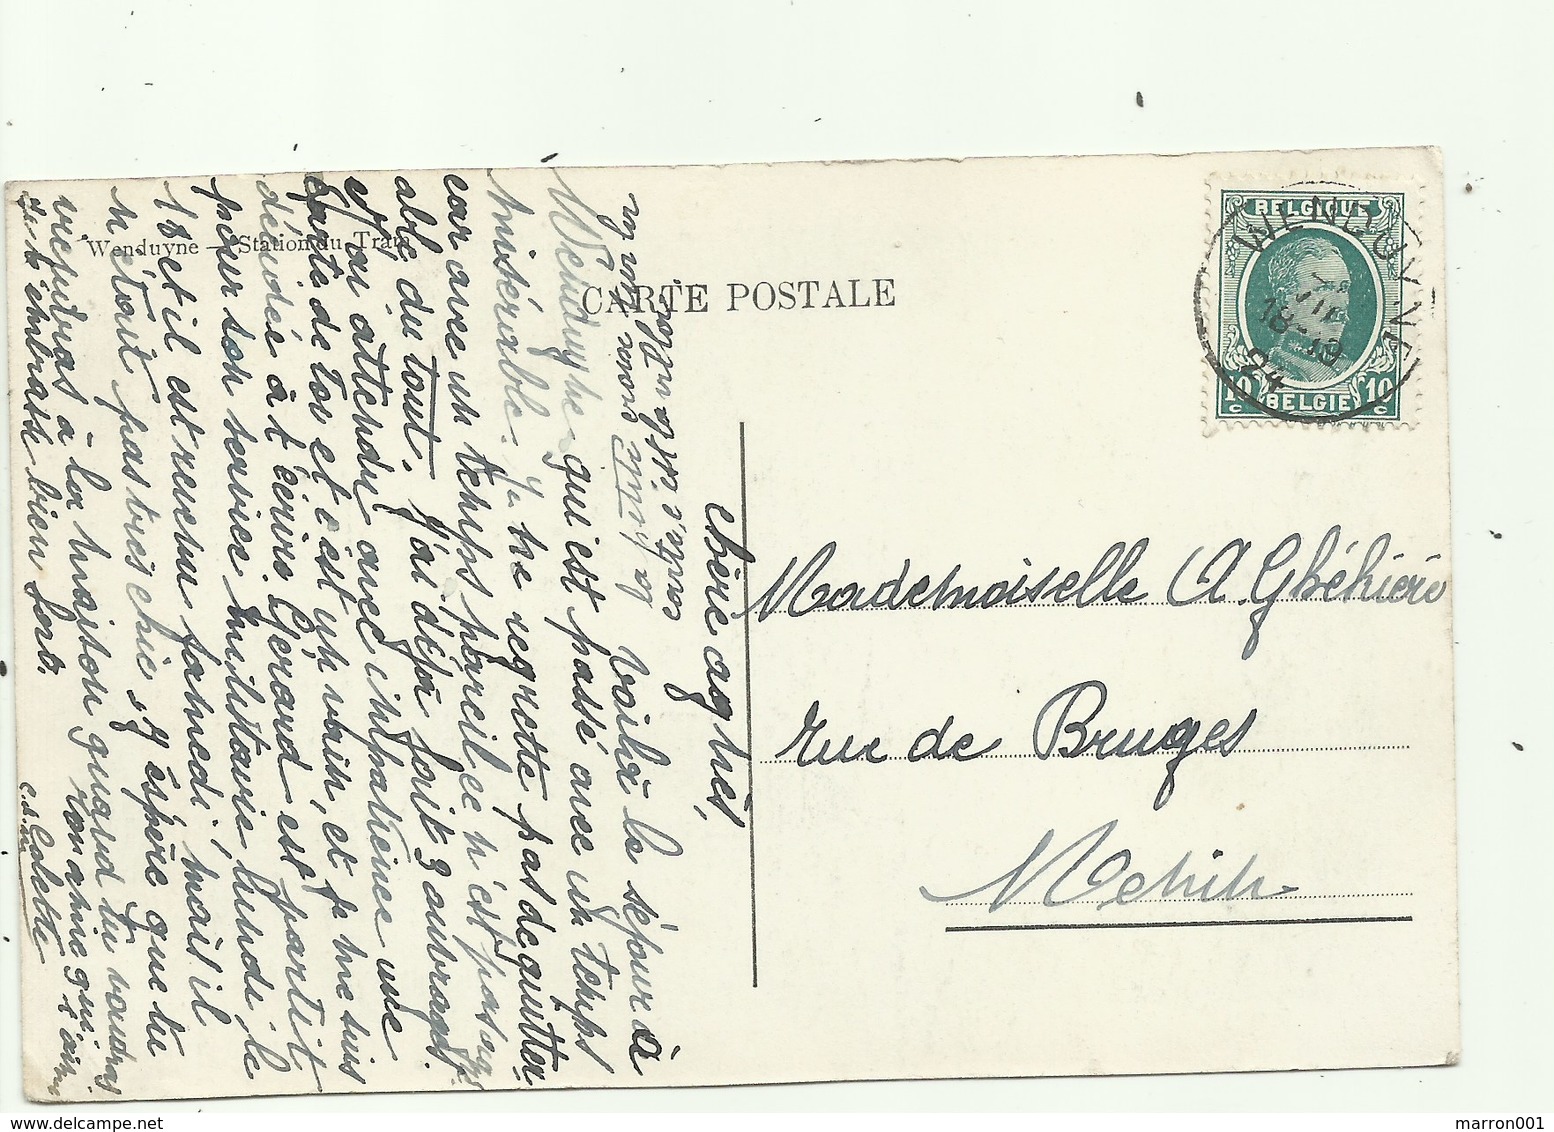 BELGIQUE
WENDUYNE
18-19
24
10 c
10 c
BELGIE
CARTE POSTALE
Wenduyne — Station du Tram
Mademoiselle A. Ghéhière
rue de Bruges
Menin
chère agnès,
voilà le séjour à
Wenduyne qui est passé avec un temps
misérable. Je ne regrette pas de quitter
car avec un temps pareil ce n'est pas
able du tout. J'ai déjà fait 3 ouvrages.
J'ai attendu avec impatience une
carte de toi et c'est en vain, et je me suis
décidée à t'écrire. Gérard est partit
pour son service militaire lundi, le
18 et il est revenu samedi, mais il
n'était pas très chic, j'espère que tu
viendras à la maison quand tu voudras
ton amie qui t'aime
Je t'embrasse bien fort.
Colette